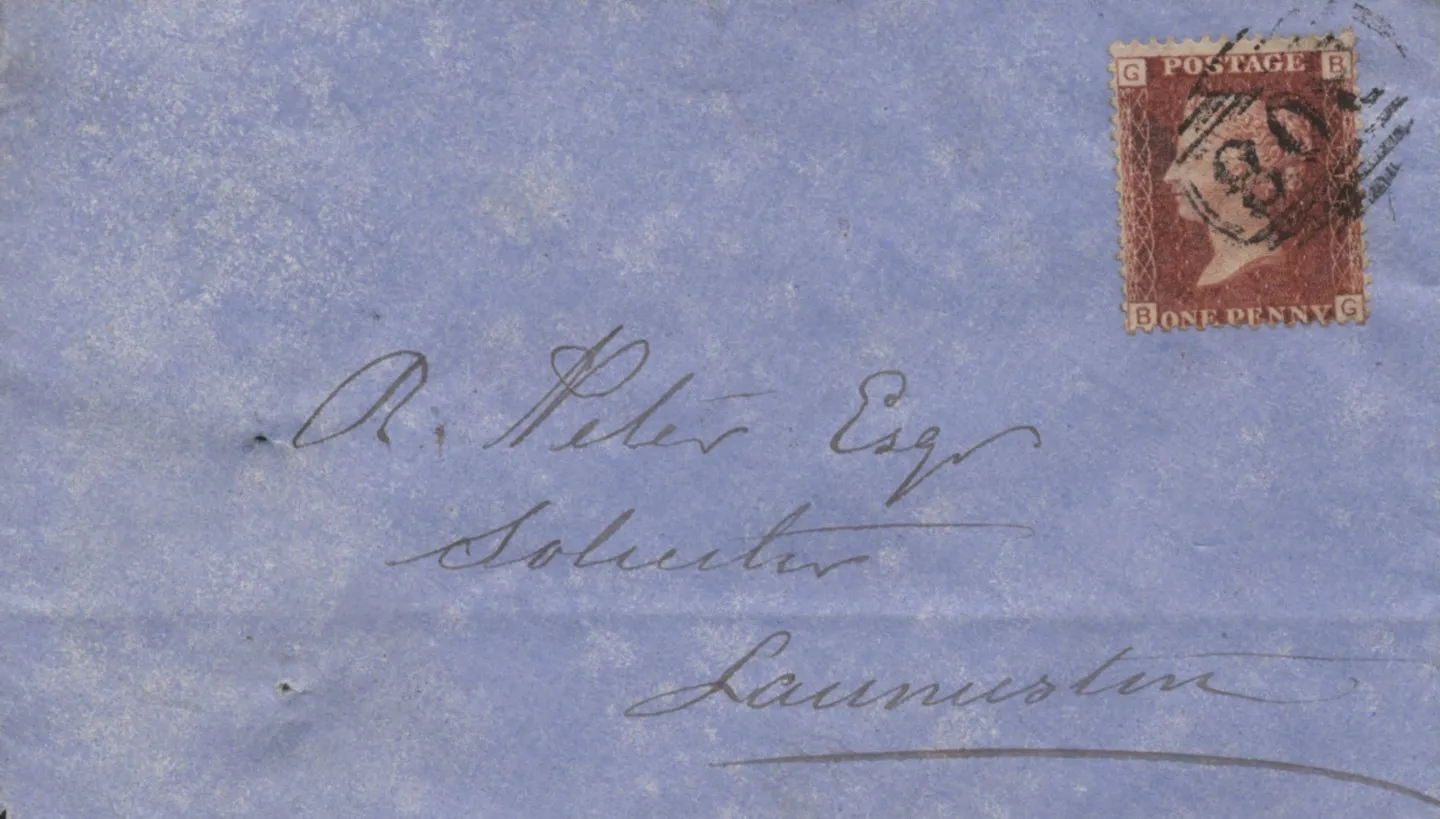 G POSTAGE B
80
B ONE PENNY G
R. Peter Esqr
Solicitor
Launceston